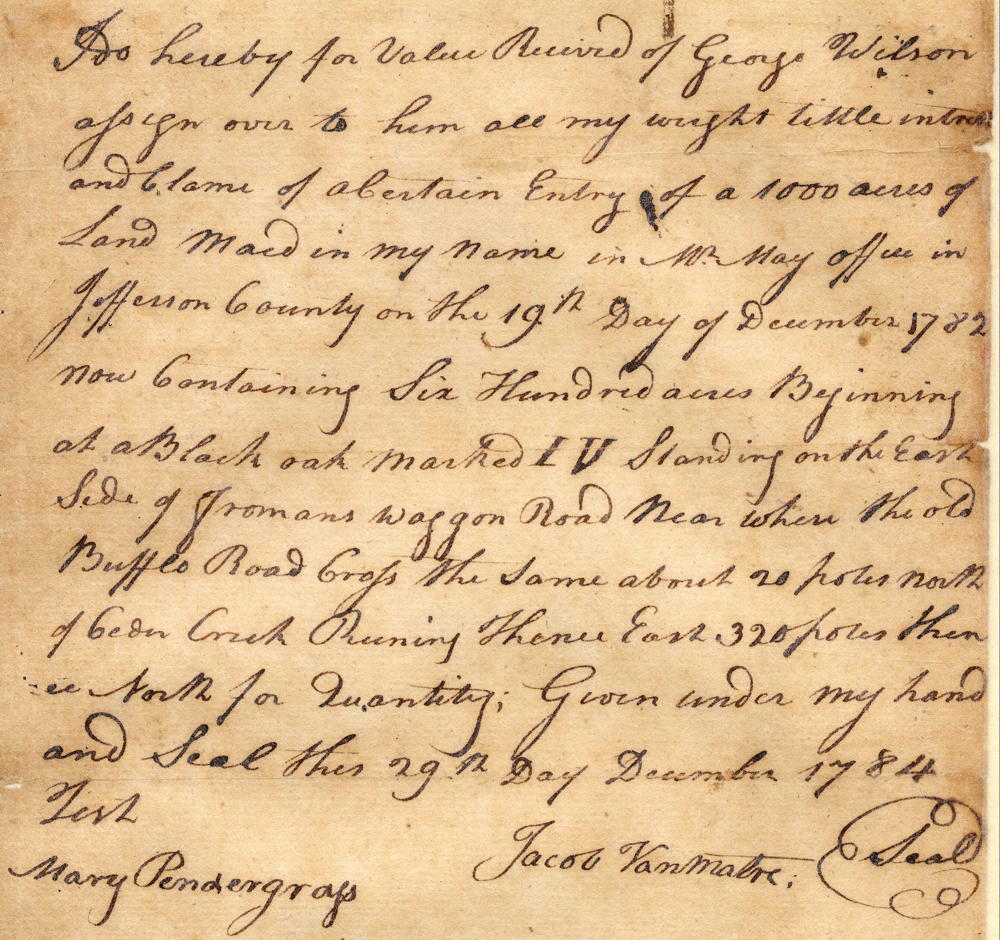 I Do hereby for Value Reeived of George Wilson
assign over to him all my wright tittle intrest
and Clame of a Certain Entry of a 1000 acres of
Land Maed in my Name in Mr. May offce in
Jefferson County on the 19th Day of December 1782
now Containing Six Hundred acres Beginning
at a Black oak marked I V Standing on the East
Side of Fromans waggon Road Near where the old
Bufflo Road Cross the Same about 20 poles north
of Ceder Creek Runing Thence East 320 poles then
ce North for Quantity; Given under my hand
and Seal this 29th Day December 1784
Test
Jacob Vanmatre. Seal
Mary Pendergrass